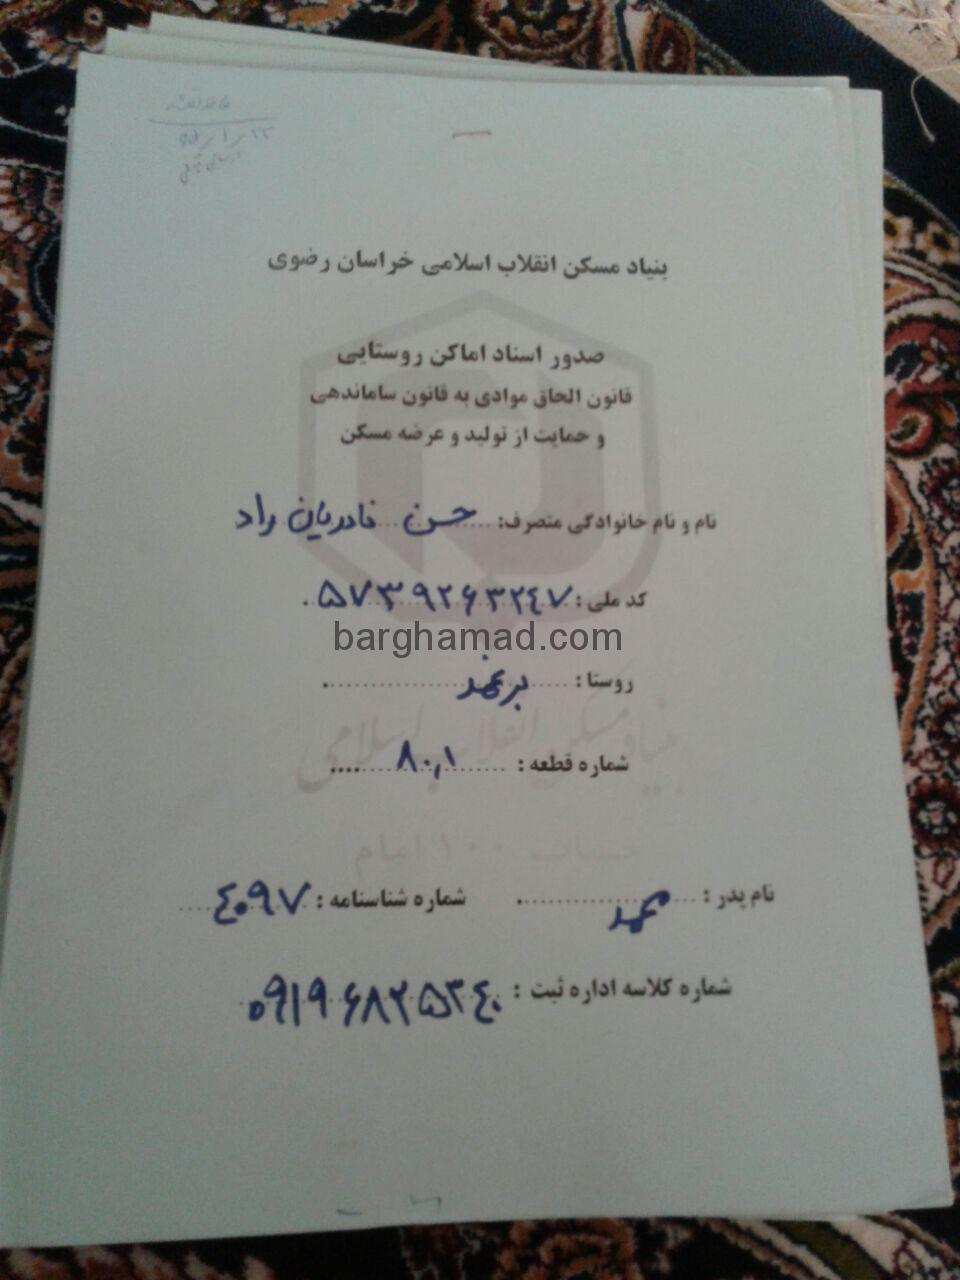 ۹۵/۱/۲۲
بنیاد مسکن انقلاب اسلامی خراسان رضوی
صدور اسناد اماکن روستایی
قانون الحاق موادی به قانون ساماندهی
و حمایت از تولید و عرضه مسکن
نام و نام خانوادگی متصرف: حسن نادریان راد
کد ملی: ۵۷۳۹۲۶۳۲۴۷
barghamad.com
روستا: برغمد
بنیاد مسکن انقلاب اسلامی
شماره قطعه: ۸۰,۱
حساب ۱۰۰ امام
نام پدر: محمد شماره شناسنامه: ۴۰۹۷
شماره کلاسه اداره ثبت: ۰۹۱۹۶۸۲۵۳۴۰